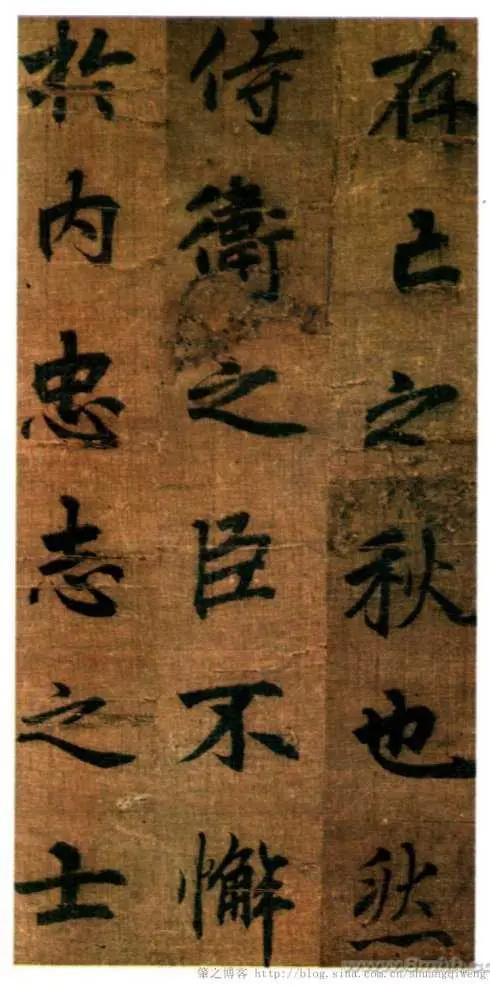 存亡之秋也然
侍衛之臣不懈
於内忠志之士
肇之博客 http://blog.sina.com.cn/shuangqiweng